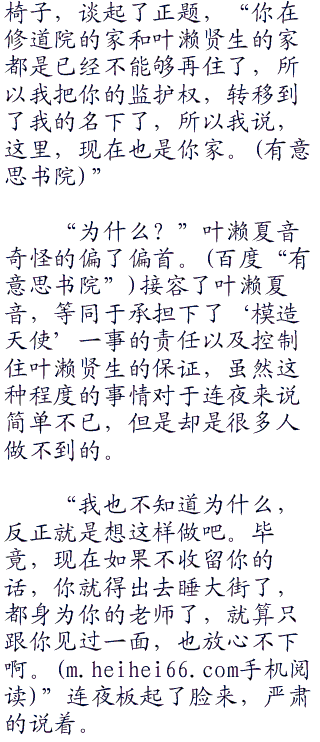 椅子，谈起了正题，“你在
修道院的家和叶濑贤生的家
都是已经不能够再住了，所
以我把你的监护权，转移到
了我的名下了，所以我说，
这里，现在也是你家。(有意
思书院)”
“为什么？”叶濑夏音
奇怪的偏了偏首。(百度“有
意思书院”)接容了叶濑夏
音，等同于承担下了‘模造
天使’一事的责任以及控制
住叶濑贤生的保证，虽然这
种程度的事情对于连夜来说
简单不已，但是却是很多人
做不到的。
“我也不知道为什么，
反正就是想这样做吧。毕
竟，现在如果不收留你的
话，你就得出去睡大街了，
都身为你的老师了，就算只
跟你见过一面，也放心不下
啊。(m.heihei66.com手机阅
读)”连夜板起了脸来，严肃
的说着。